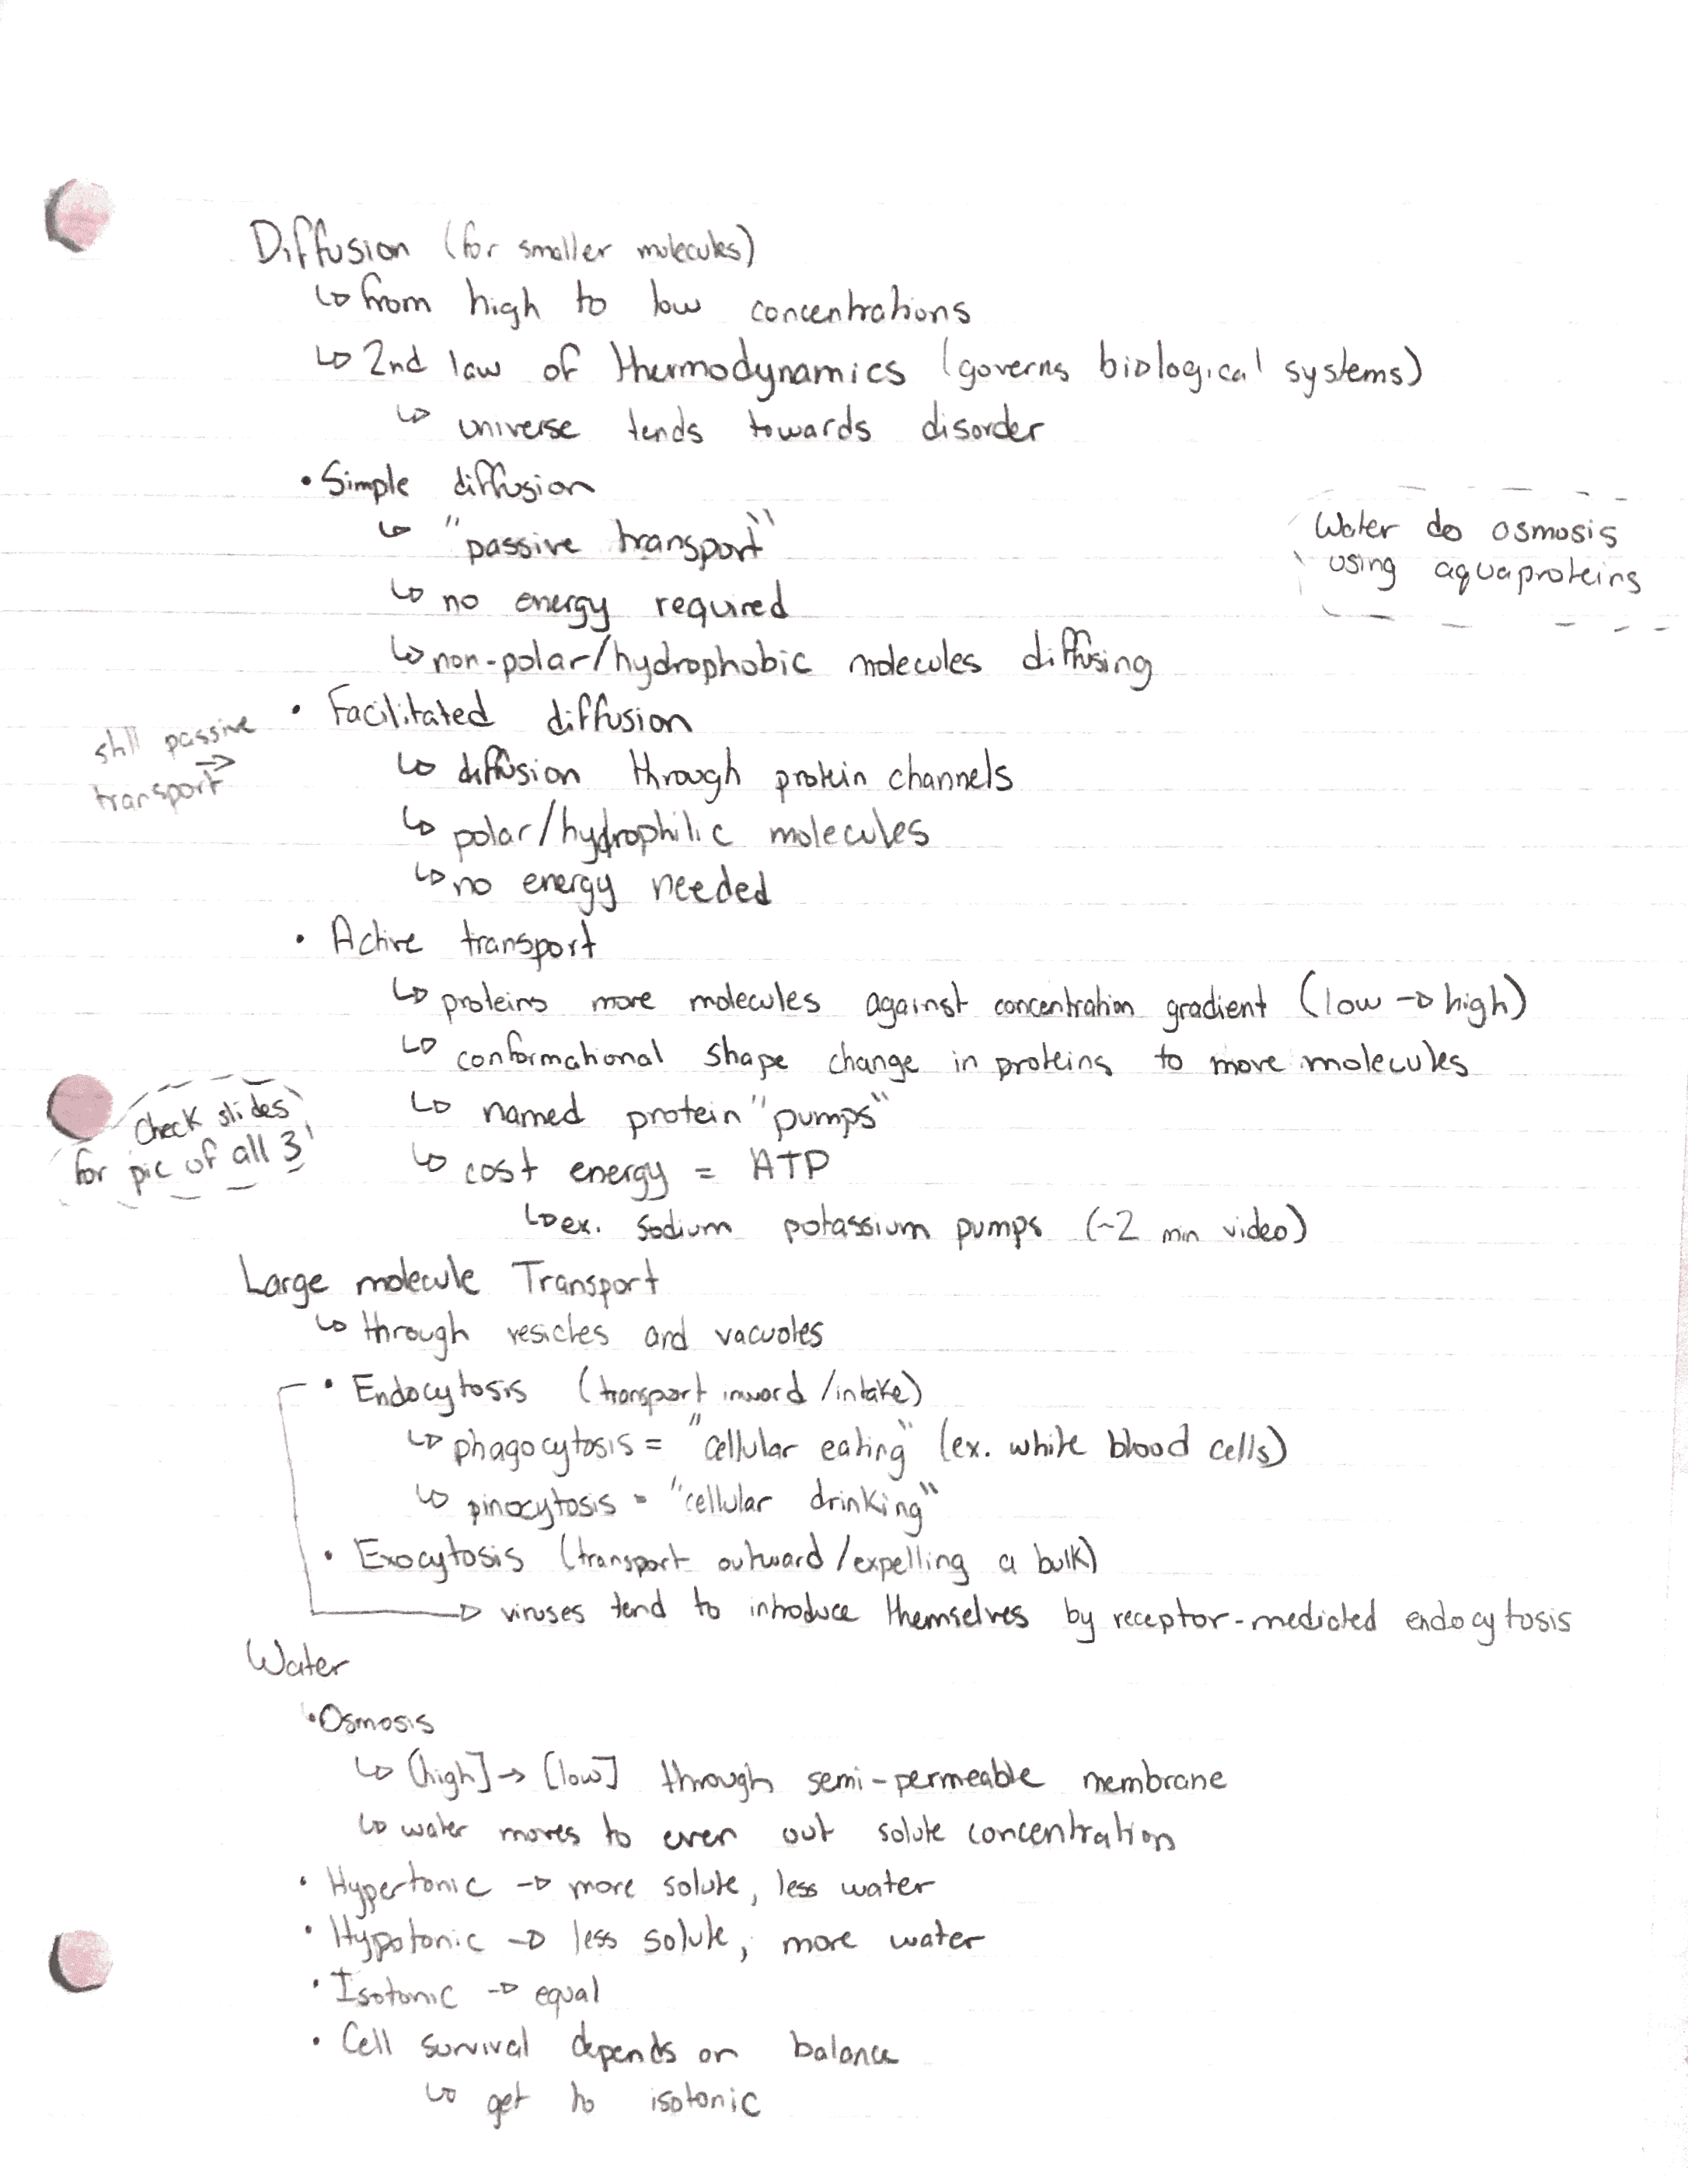 Diffusion (for smaller molecules)
↳ from high to low concentrations
↳ 2nd law of thermodynamics (governs biological systems)
↳ universe tends towards disorder
• Simple diffusion
↳ "passive transport"
↳ no energy required
↳ non-polar/hydrophobic molecules diffusing
Water do osmosis
using aquaproteins
• Facilitated diffusion
still passive
transport →
↳ diffusion through protein channels
↳ polar/hydrophilic molecules
↳ no energy needed
• Active transport
↳ proteins move molecules against concentration gradient (low → high)
↳ conformational shape change in proteins to move molecules
↳ named protein "pumps"
↳ cost energy = ATP
↳ ex. sodium potassium pumps (~2 min video)
Check slides
for pic of all 3!
Large molecule Transport
↳ through vesicles and vacuoles
• Endocytosis (transport inward/intake)
↳ phagocytosis = "cellular eating" (ex. white blood cells)
↳ pinocytosis = "cellular drinking"
• Exocytosis (transport outward/expelling a bulk)
→ viruses tend to introduce themselves by receptor-mediated endocytosis
Water
• Osmosis
↳ [high] → [low] through semi-permeable membrane
↳ water moves to even out solute concentration
• Hypertonic → more solute, less water
• Hypotonic → less solute, more water
• Isotonic → equal
• Cell survival depends on balance
↳ get to isotonic